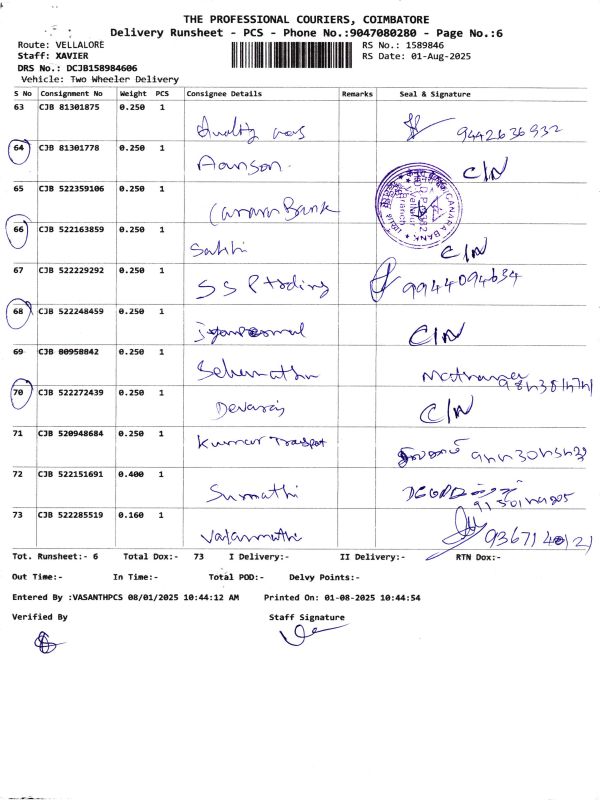 THE PROFESSIONAL COURIERS, COIMBATORE
Delivery Runsheet - PCS - Phone No.:9047080280 - Page No.:6
Route: VELLALORE RS No.: 1589846
Staff: XAVIER RS Date: 01-Aug-2025
DRS No.: DCJB158984606
Vehicle: Two Wheeler Delivery
S No Consignment No Weight PCS Consignee Details Remarks Seal & Signature
63 CJB 81301875 0.250 1
Quality 9442636932
64 CJB 81301778 0.250 1
Aanson. C/N
65 CJB 522359106 0.250 1
Canara Bank CANARA BANK
66 CJB 522163859 0.250 1
Sakhi C/N
67 CJB 522229292 0.250 1
SS Ptrading 9944094634
68 CJB 522248459 0.250 1
C/N
69 CJB 80958842 0.250 1
70 CJB 522272439 0.250 1
Devaraj C/N
71 CJB 520948684 0.250 1
Kumar
72 CJB 522151691 0.400 1
Sumathi
73 CJB 522285519 0.160 1
Tot. Runsheet:- 6 Total Dox:- 73 I Delivery:- II Delivery:- RTN Dox:-
Out Time:- In Time:- Total POD:- Delvy Points:-
Entered By :VASANTHPCS 08/01/2025 10:44:12 AM Printed On: 01-08-2025 10:44:54
Verified By Staff Signature